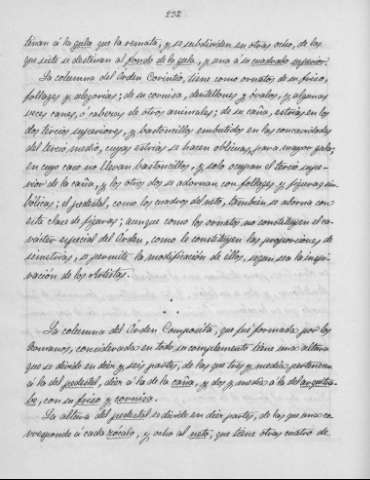 232
tenan á la gula que la remata, y se subdividen en otras ocho, de las
que siete se destinan al fondo de la gula, y una á su cuadrado superior.
La columna del Orden Corintio, tiene como ornatos de su friso,
follages y alegorías; de su cornisa, dentellones y óvalos, y algunas
veces canes, ó cabezas de otros animales; de su caña, estrías en los
dos tercios superiores, y bastoncillos embutidos en las concavidades
del tercio medio, cuyas estrías se hacen oblicuas, para mayor gala,
en cuyo caso no llevan bastoncillos, y solo ocupan el tercio supe-
rior de la caña, y los otros dos se adornan con follages y figuras sim-
bólicas; el pedestal, como los cuadros del neto, tambien se adorna con
esta clase de figuras; aunque como los ornatos no constituyen el ca-
rácter especial del Orden, como le constituyen las proporciones de
simetrías, se permite la modificación de ellos, segun sea la inspi-
ración de los Artistas.
La columna del Orden Composita, que fué formada por los
Romanos, considerada en todo su complemento tiene una altura
que se divide en diez y seis partes, de las que tres y media pertenecen
á la del pedestal, diez á la de la caña, y dos y media á la del arquitra-
be, con su friso y cornisa.
La altura del pedestal se divide en diez partes, de las que una co-
rresponde á cada zócalo, y ocho al neto, que tiene otras cuatro de